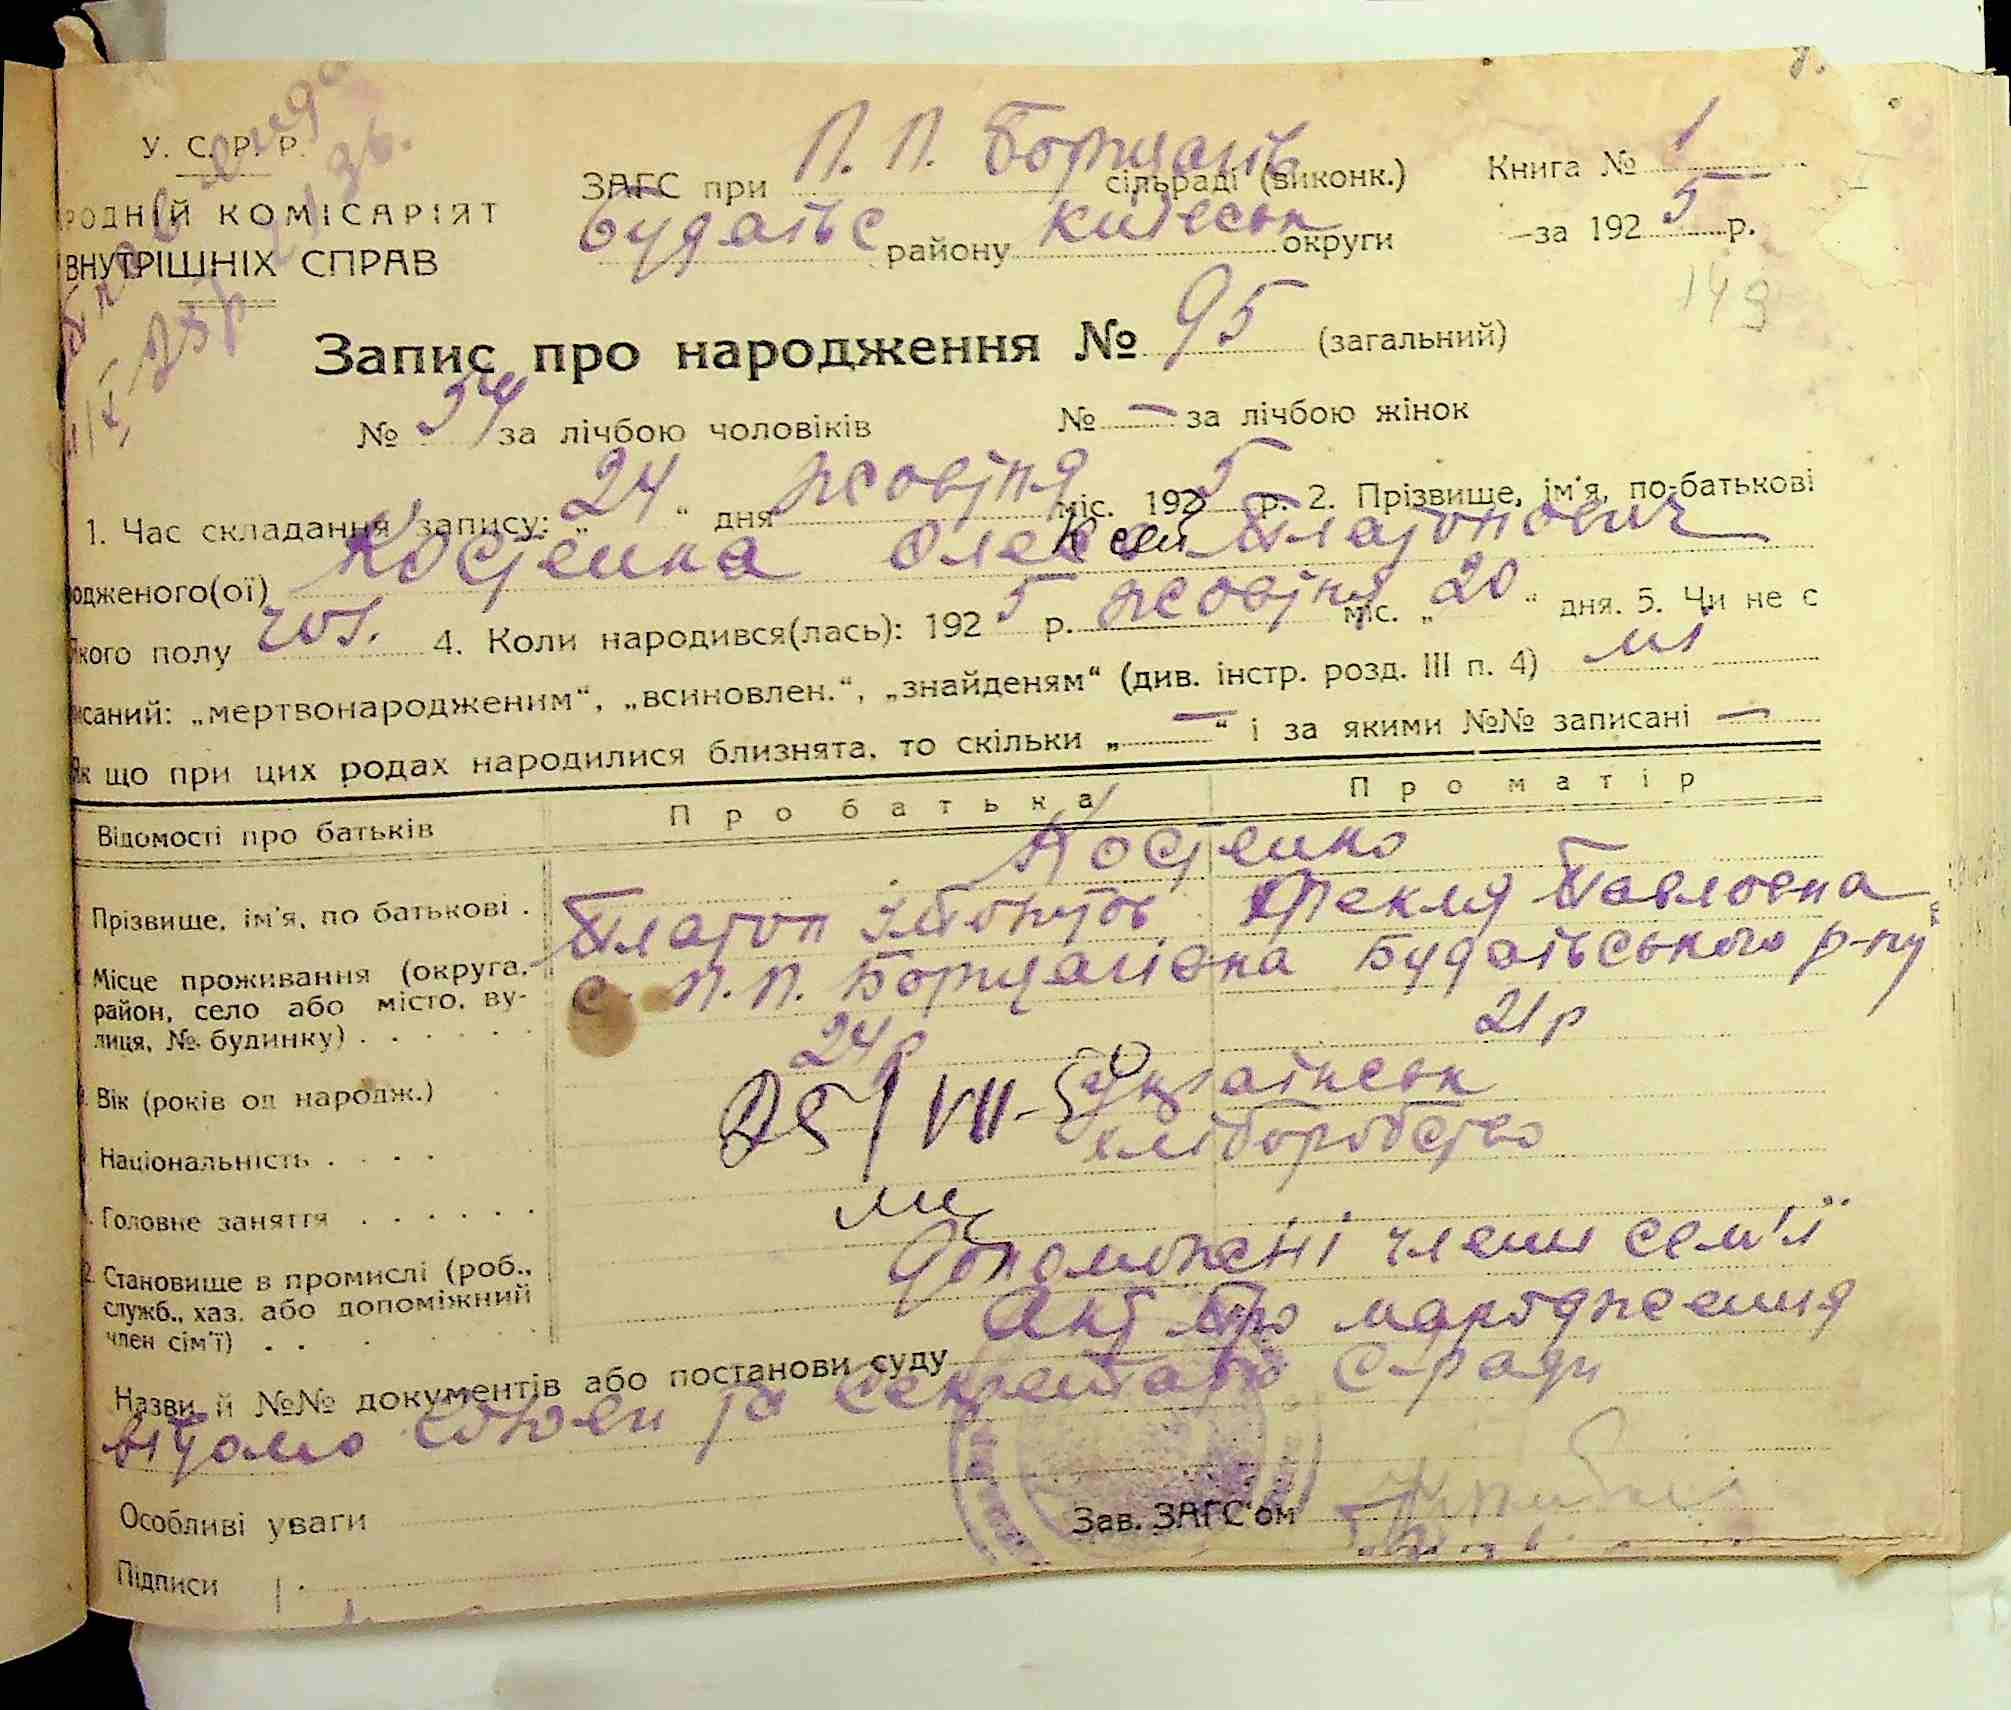 У. С. Р. Р.
РОДНІЙ КОМІСАРІЯТ
ВНУТРІШНІХ СПРАВ
ЗАГС при П. П. Борщагів сільраді (виконк.)
Будаївс району Київськ округи
Книга № 1
за 1925 р.
149
Запис про народження № 95 (загальний)
№ 54 за лічбою чоловіків № — за лічбою жінок
1. Час складання запису: „24“ дня жовтня міс. 1925 р. 2. Прізвище, ім'я, по-батькові
одженого(ої) Костенка Олексій Платонович
якого полу чол. 4. Коли народився(лась): 1925 р. жовтня міс. „20“ дня. 5. Чи не є
исаний: „мертвонародженим“, „всиновлен.“, „знайденям“ (див. інстр. розд. III п. 4) ні
Як що при цих родах народилися близнята, то скільки „—“ і за якими №№ записані —
Відомості про батьків Про батька Про матір
Костенко
Прізвище, ім'я, по батькові . Платон Фекля Павловна
Місце проживання (округа, район, село або місто, вулиця, №. будинку) с. П. П. Борщагівка Будаївського р-ну
Вік (років од народж.) 24 р 21 р
25/VII-50
Національність Українськ
Головне заняття хліборобство
Становище в промислі (роб., служб., хаз. або допоміжний член сім'ї) допоможні члени сем'ї
Назви й №№ документів або постанови суду Акт про народження
відомо голови та секретаря С-ради
Особливі уваги
Зав. ЗАГС'ом
Підписи